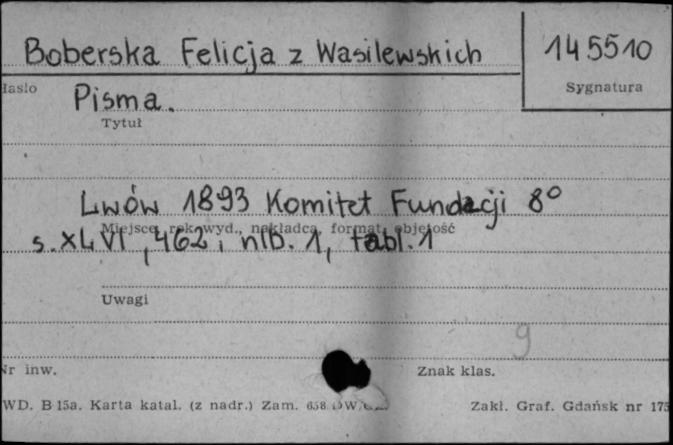 Boberska Felicja z Wasilewskich
145510
Hasło
Sygnatura
Pisma.
Tytuł
Lwów 1893 Komitet Fundacji 8°
Miejsce, rok wyd., nakładca, format, objętość
s. XLVI, 462, nlb. 1, tabl. 1
Uwagi
9
Nr inw.
Znak klas.
WD. B 15a. Karta katal. (z nadr.) Zam.
Zakł. Graf. Gdańsk nr 175